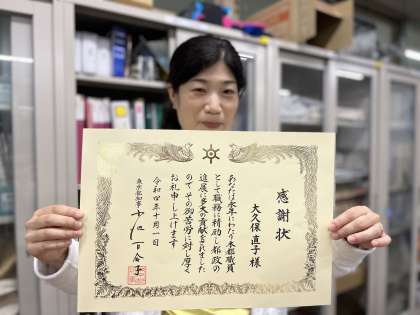 感謝状
大久保 直子 様
あなたは永年にわたり本都職員
として職務に精励し都政の
進展に多大の貢献をされました
のでその御苦労に対し厚く
お礼申し上げます
令和四年十月一日
東京都知事 小池百合子